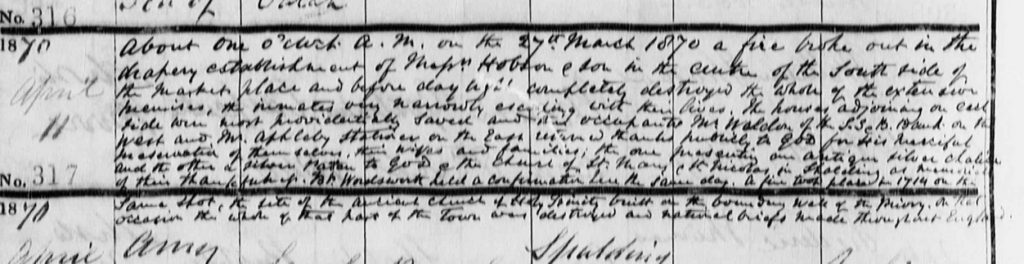 No. 316
1870 About One o'clock A. M. on the 27th March 1870 a fire broke out in the
drapery establishment of Messrs Hobson & son in the centre of the South side of
April the market place and before day light completely destroyed the whole of the extensive
premises, the inmates very narrowly escaping with their lives. The houses adjoining on each
11 side were most providentially saved, and the occupants Mr Weldon of the S.S.&B. Bank on the
West and Mr. Appleby Stationer on the East returned thanks publicly to God for his merciful
preservation of themselves, their wives and families; the one presenting an antique silver chalice
and the other a silver Paten to God & the Church of St. Mary & St. Nicolas in Spalding as memorials
No. 317 of their thankfulness. Bp Wordsworth held a confirmation here the same day. A fire took place in 1714 on the
1870 Same Spot, the site of the ancient church of Holy Trinity built on the boundary wall of the Priory. On that
occasion the whole of that part of the town was destroyed and national briefs made throughout England.
April Amy Spalding